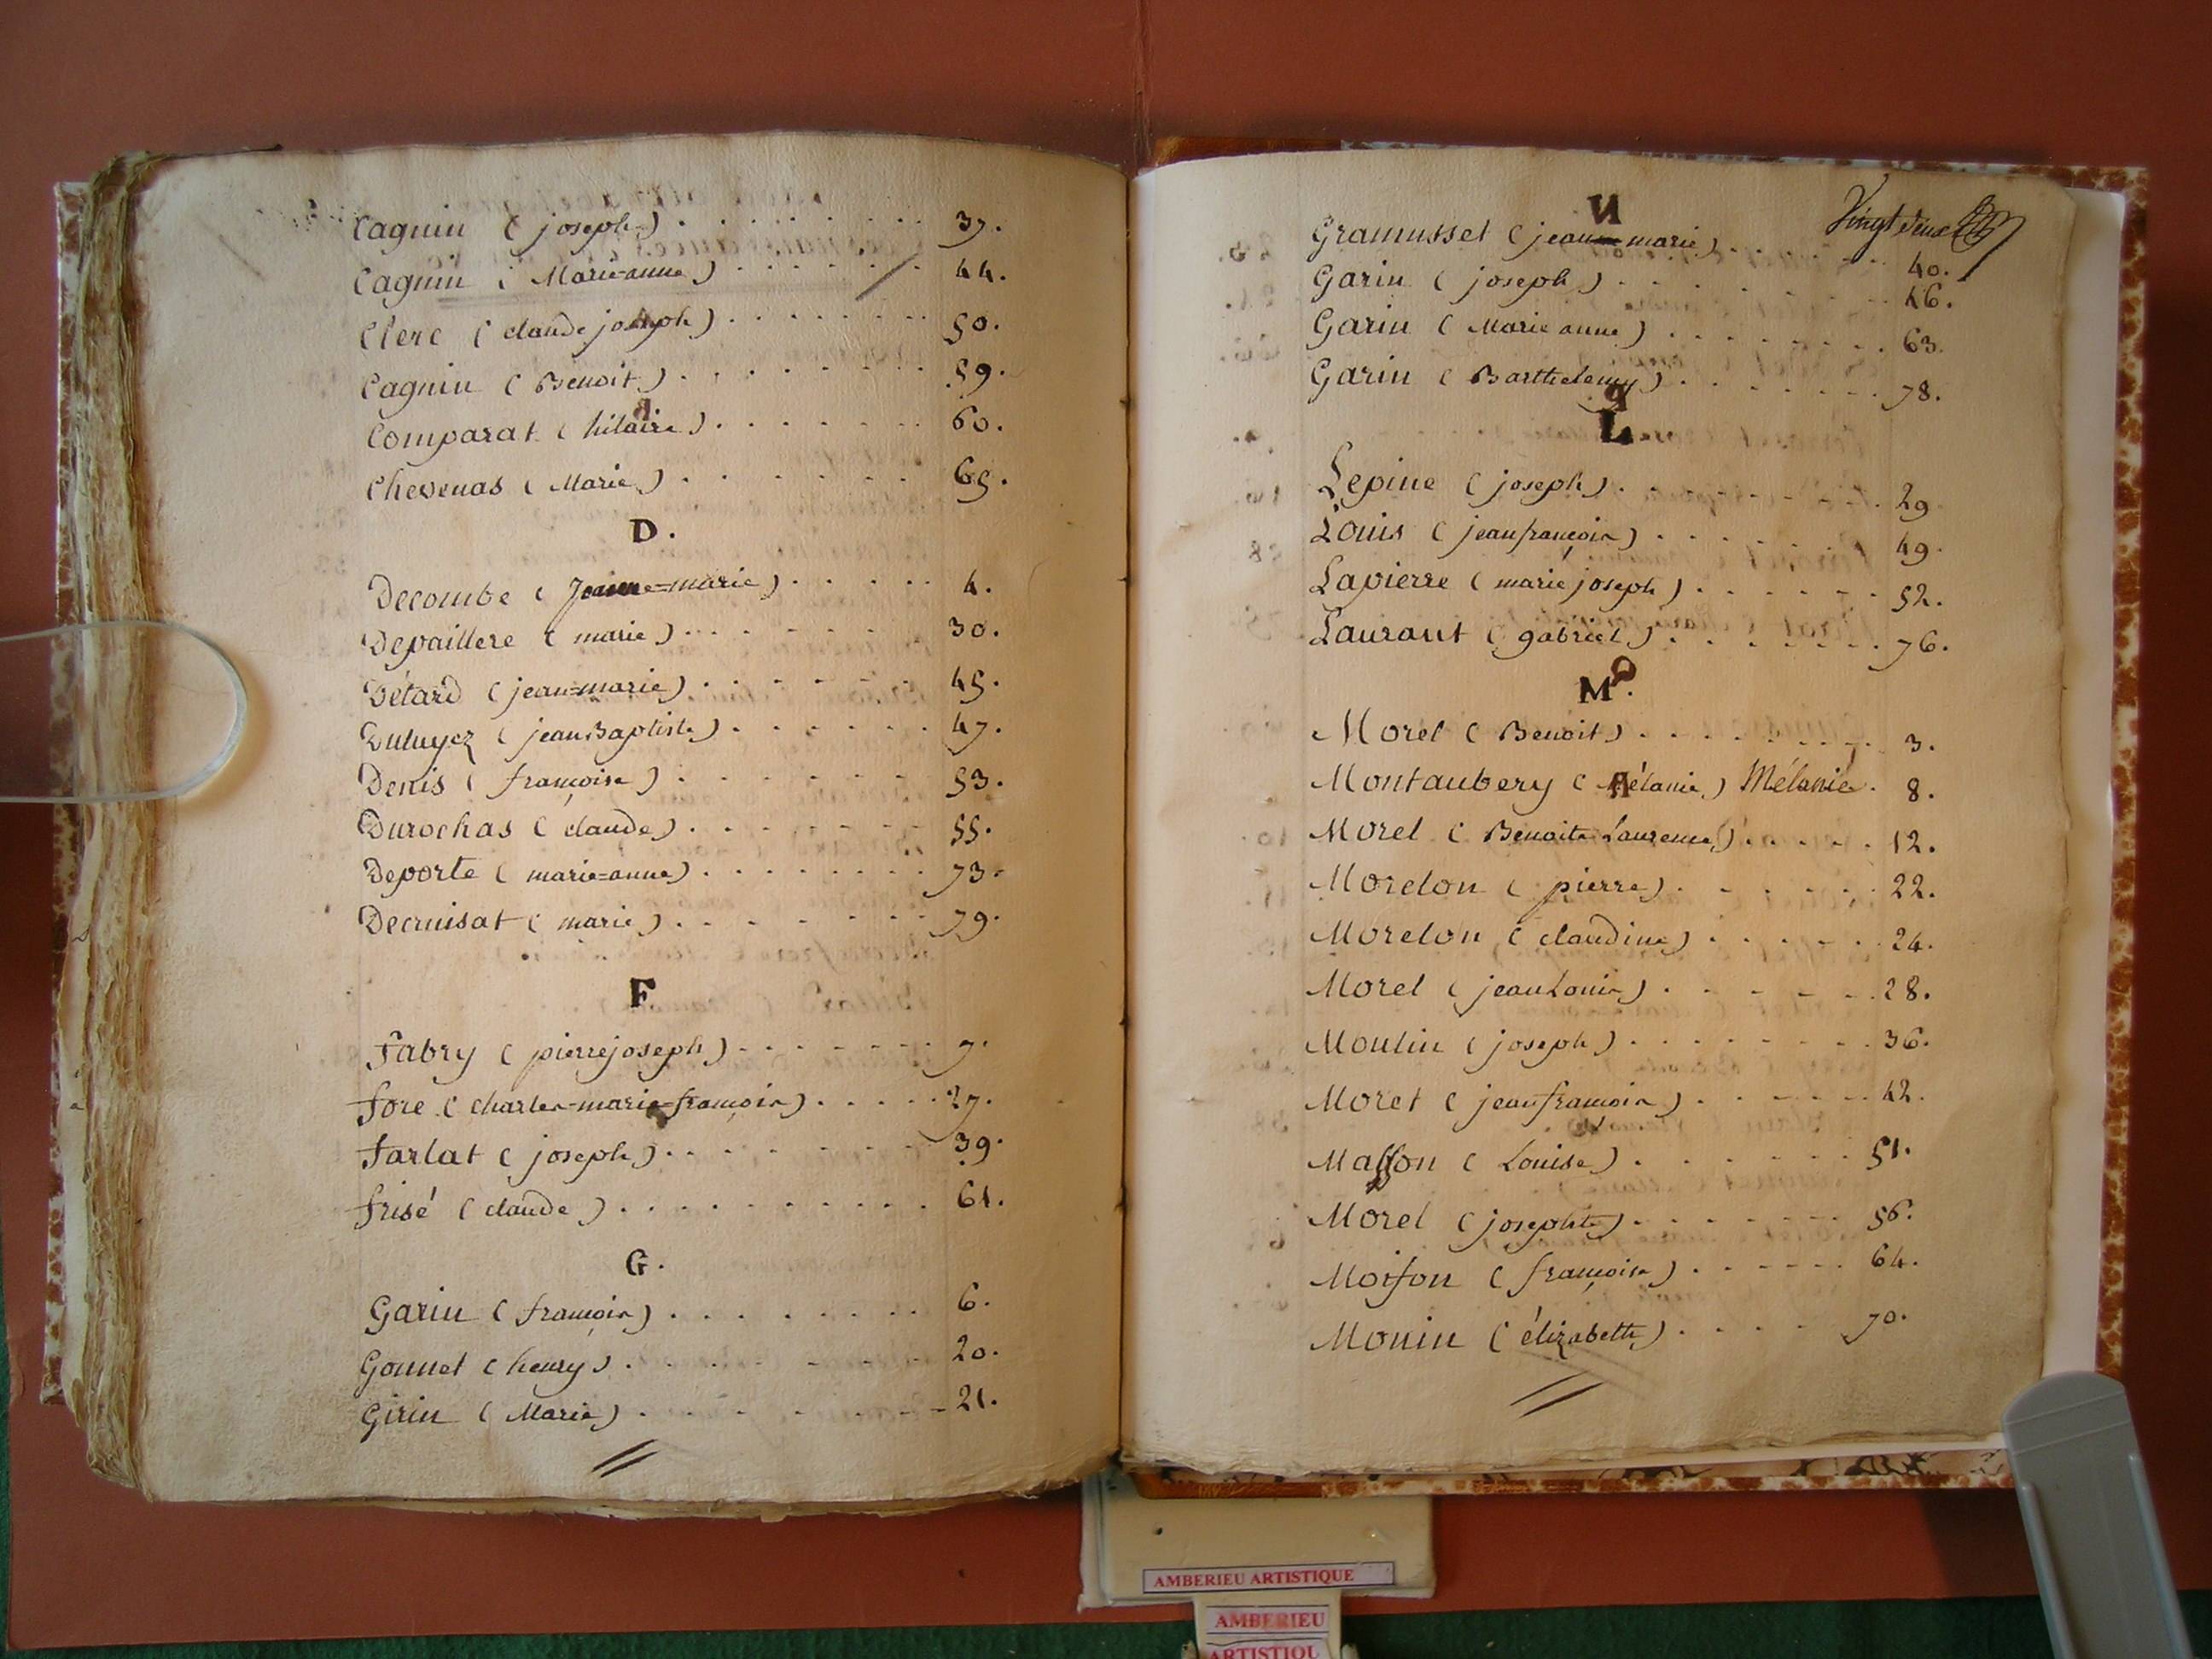 Cagnin (joseph) . . . . . . . . . 37.
Cagnin (Marie-anne) . . . . . . 44.
Clerc (claude joseph) . . . . . . . 50.
Cagnin (Benoit) . . . . . . . . 59.
Comparat (hilaire) . . . . . . . 60.
Chevenas (Marie) . . . . . . . 65.
D.
Decombe (Jeanne=marie) . . . . . 4.
Depaillere (marie) . . . . . . . 30.
Détard (jean=marie) . . . . . . . 45.
(jean Baptiste) . . . . . . 47.
Denis (françoise) . . . . . . . 53.
Durochas (claude) . . . . . . . 55.
Deporte (marie=anne) . . . . . . . . 73.
Decruisat (marie) . . . . . . . . 79.
F
Fabry (pierre joseph) . . . . . . . 7.
fore (charles=marie=françois) . . . . . 27.
Farlat (joseph) . . . . . . . . 39.
frisé (claude) . . . . . . . . . . 61.
G.
Garin (françois) . . . . . . . . 6.
Gonnet (henry) . . . . . . . . 20.
Girin (Marie) . . . . . . . . 21.
Vingt deux
Gramusset (jean marie) . . . . . . 40.
Garin (joseph) . . . . . . . . 46.
Garin (Marie anne) . . . . . . . . 63.
Garin (Barthelemy) . . . . . . . . 78.
L.
Lepine (joseph) . . . . . . . . 29
Louis (jean françois) . . . . . . . 49.
Lapierre (marie joseph) . . . . . . 52.
Laurant (gabriel) . . . . . . . . 76.
M.
Morel (Benoit) . . . . . . . . . 3.
Montaubery (Mélanie) Mélanie. 8.
Morel (Benoite Laurence) . . . . . 12.
Morelon (pierre) . . . . . . 22.
Morelon (claudine) . . . . . . 24.
Morel (jean Louis) . . . . . . 28.
Moulin (joseph) . . . . . . . . 36.
Moret (jean françois) . . . . . . 42.
Masson (Louise) . . . . . . . 51.
Morel (josephte) . . . . . . . 56.
Moisson (françoise) . . . . . . 64.
Monin (élizabeth) . . . . 70.
AMBERIEU ARTISTIQUE
AMBERIEU